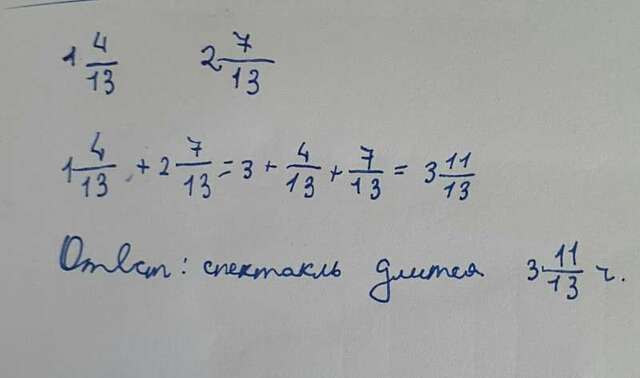 1 4/13 2 7/13
1 4/13 + 2 7/13 = 3 + 4/13 + 7/13 = 3 11/13
Ответ: спектакль длится 3 11/13 ч.